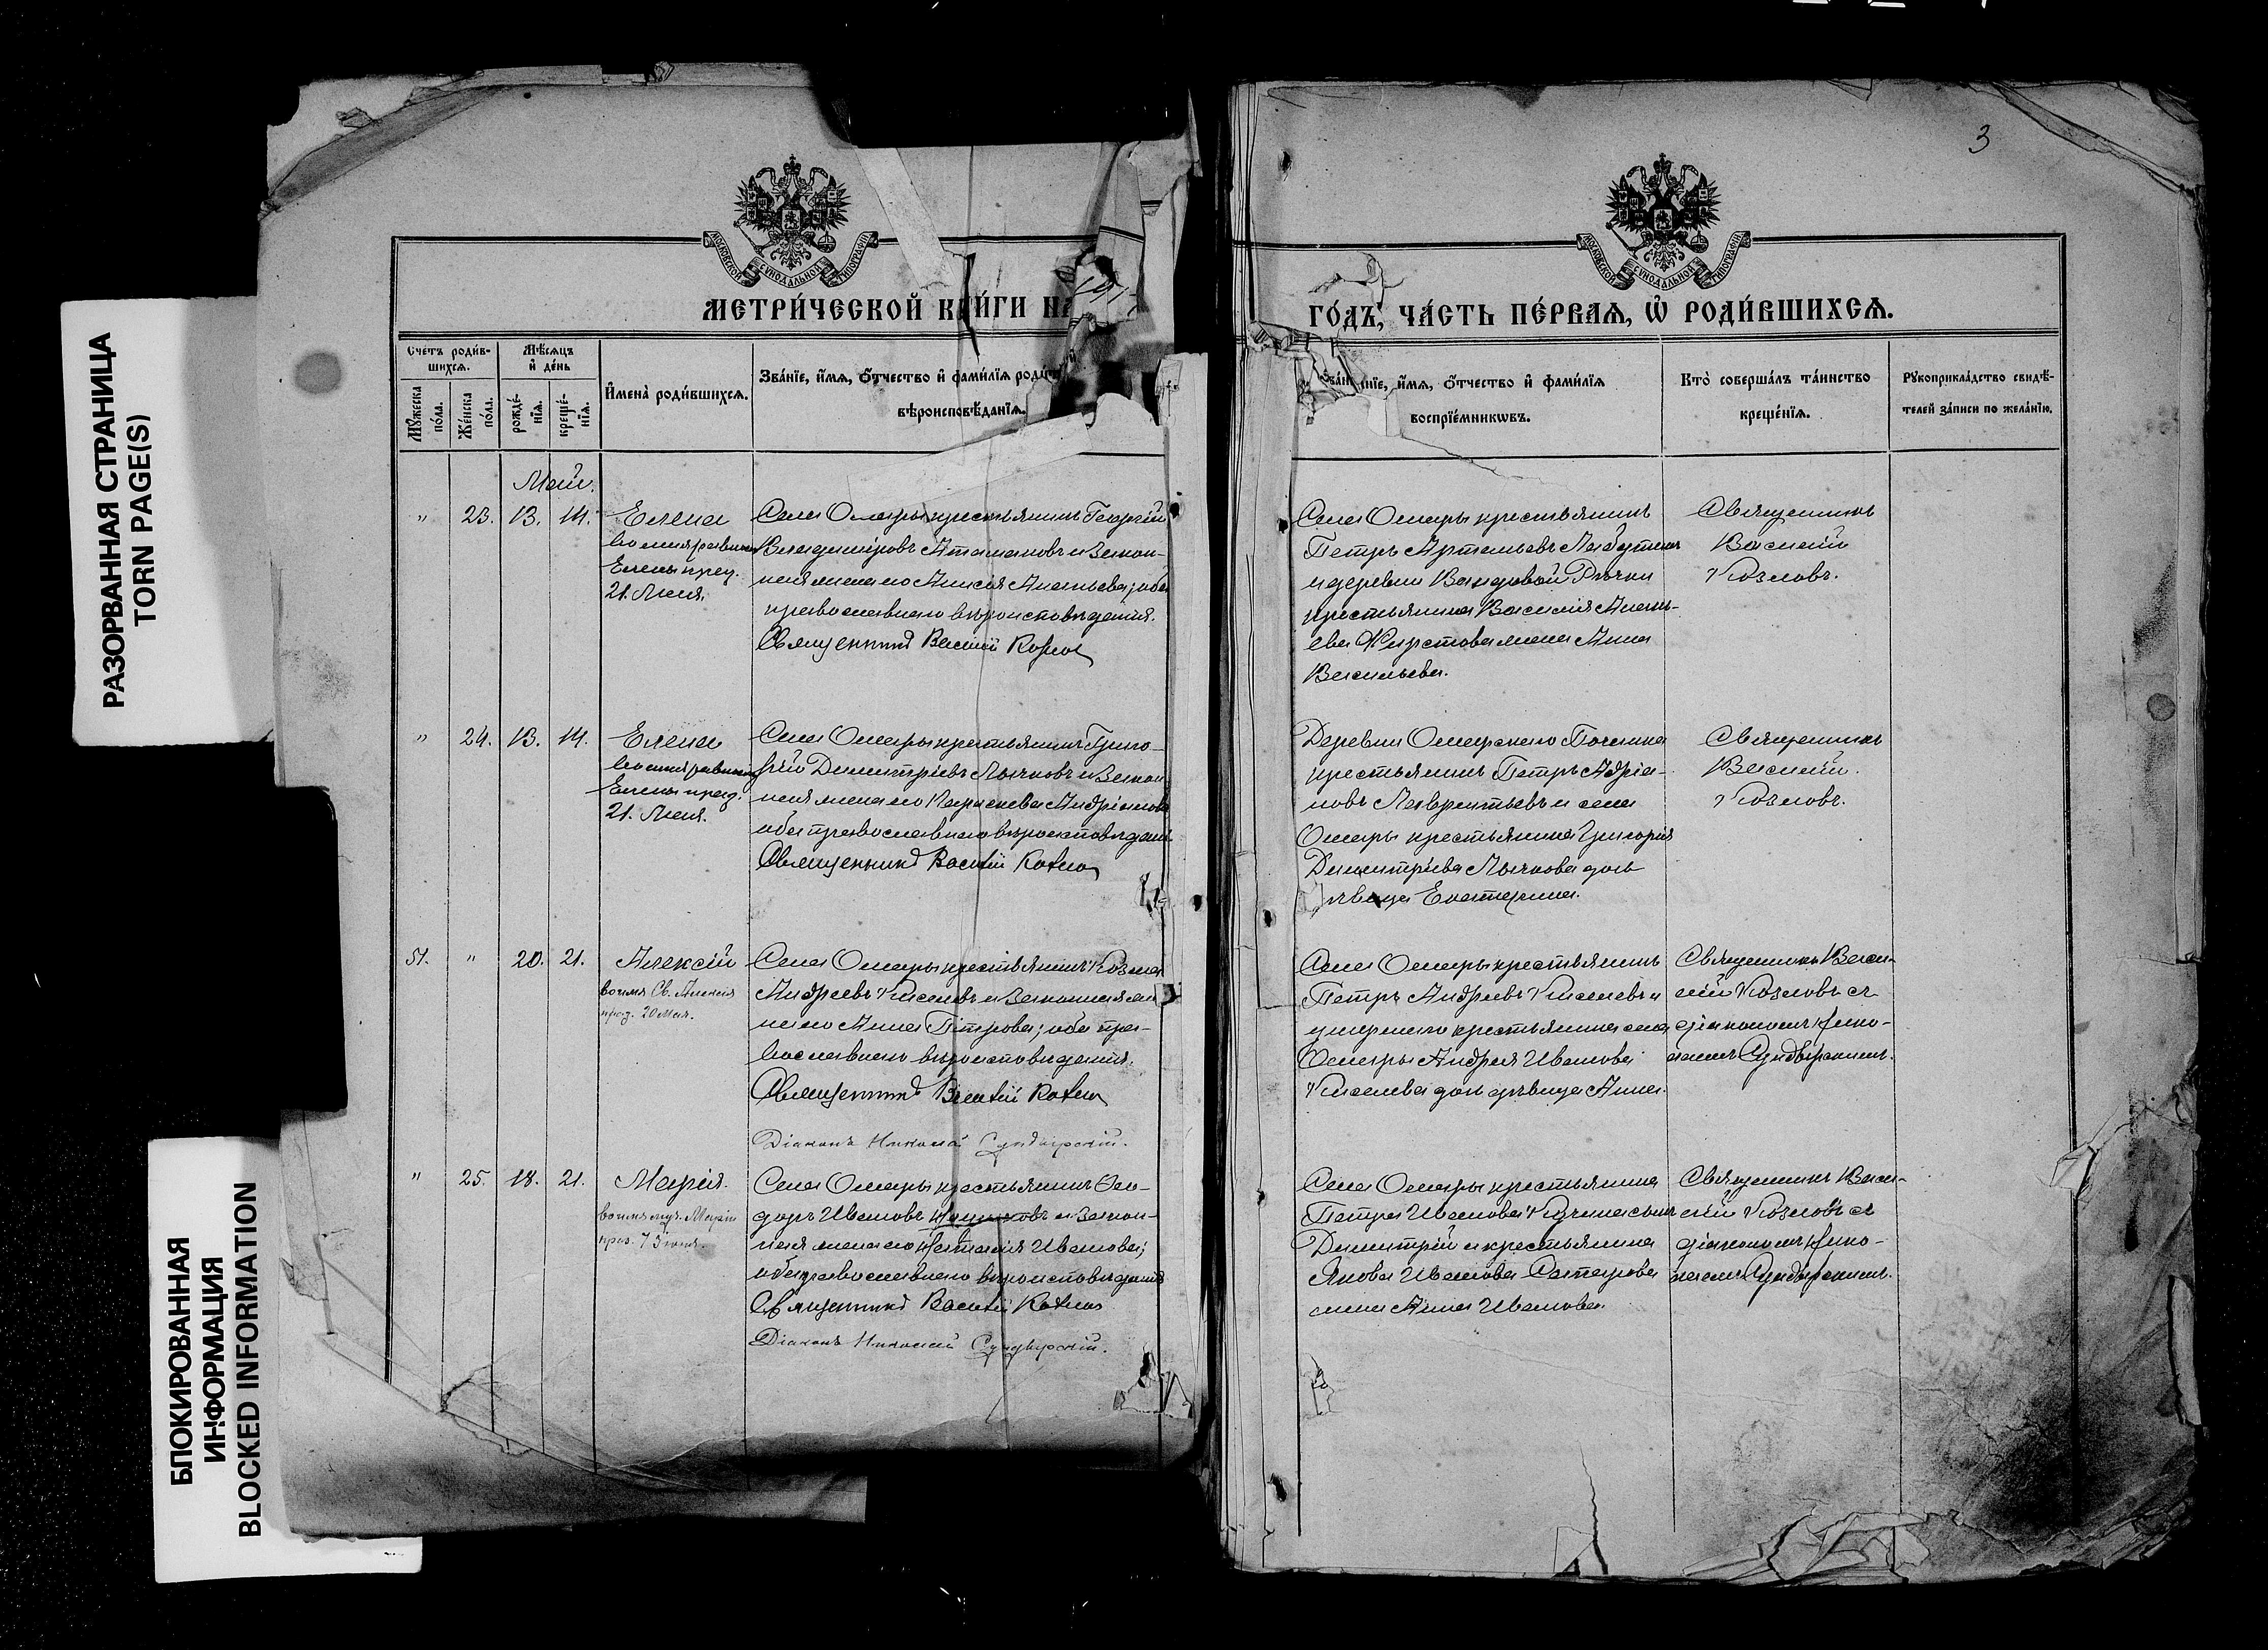 РАЗОРВАННАЯ СТРАНИЦА
TORN PAGE(S)
БЛОКИРОВАННАЯ
ИНФОРМАЦИЯ
BLOCKED INFORMATION
3
МОСКОВСКОЙ СѴНОДАЛЬНОЙ ТИПОГРАФІИ
МОСКОВСКОЙ СѴНОДАЛЬНОЙ ТИПОГРАФІИ
МЕТРИ́ЧЕСКОЙ КНИ́ГИ НА
ГО́ДЪ, ЧА́СТЬ ПЕ́РВАѦ, Ѡ҆ РОДИ́ВШИХСѦ.
Сче́тъ роди́в-
шихсѧ.
Мꙋ́жеска
по́ла.
Же́нска
по́ла.
Мѣ́сѧцъ
и҆ де́нь
рожде́-
нїѧ.
креще́-
нїѧ.
И҆мена̀ роди́вшихсѧ.
Зва́нїе, и҆́мѧ, ѻ҆́тчество и҆ фами́лїѧ
вѣроисповѣ́данїѧ.
нїе, и҆́мѧ, ѻ҆́тчество и҆ фами́лїѧ
воспрїе́мникѡвъ.
Кто̀ соверша́лъ та́инство
креще́нїѧ.
Рꙋкоприкла́дство свидѣ́-
телей за́писи по жела́нїю.
Май.
" 23. 13. 14.
Елена
Елены праз.
21. Мая.
Села Омары крестьянинъ Георгій
Владиміровъ Атамановъ и закон-
ная жена его Анисія Ананьева; оба
православнаго вѣроисповѣданія.
Священникъ Василій Козлов
Села Омары крестьянинъ
Петръ Артемьевъ
и деревни Вандовой Рѣчки
крестьянина Василія Анань-
ева жена Анна
Васильева.
Священникъ
Василій
Козловъ.
" 24. 13. 14.
Елена
Елены праз.
21. Мая.
Села Омары крестьянинъ Григо-
рій Димитріевъ Лычковъ и закон
ная жена его Параскева Андріанова
оба православнаго вѣроисповѣдан.
Священникъ Василій Козлов
Деревни Омарскаго Починка
крестьянинъ Петръ Адріа-
новъ Лаврентьевъ и села
Омары крестьянина Григорія
Димитріева Лычкова дочь
дѣвица Екатерина.
Священникъ
Василій
Козловъ.
51. " 20. 21.
Алексій
во имя Св. Алексія
праз. 20 Мая.
Села Омары крестьянинъ Козма
Андреевъ Киселевъ и законная же
на его Анна Петрова; оба пра-
вославнаго вѣроисповѣданія.
Священникъ Василій Козлов
Діаконъ Николай Сундырскій.
Села Омары крестьянинъ
Петръ Андреевъ Киселевъ и
умершаго крестьянина села
Омары Андрея Иванова
Киселева дочь дѣвица Анна.
Священникъ Васи-
лій Козловъ съ
діакономъ Нико-
лаемъ Сундырскимъ.
" 25. 18. 21.
Марія.
во имя муч. Маріи
праз. 7 Іюня.
Села Омары крестьянинъ Ѳео-
доръ Ивановъ и закон-
ная жена его Наталія Иванова;
оба православнаго вѣроисповѣданія
Священникъ Василій Козлов
Діаконъ Николай Сундырскій.
Села Омары крестьянина
Петра Иванова сынъ
Димитрій и крестьянина
Якова Иванова
жена Анна Иванова.
Священникъ Васи-
лій Козловъ съ
діакономъ Нико-
лаемъ Сундырскимъ.